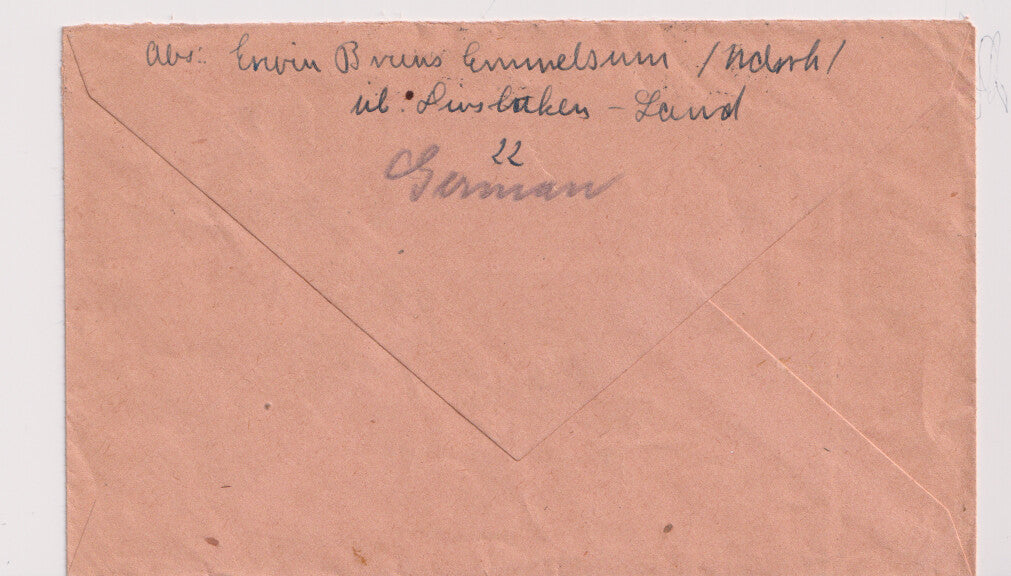 Abs: Erwin Bruns Emmelsum /Ndrrh/
üb. Dinslaken - Land
22
German